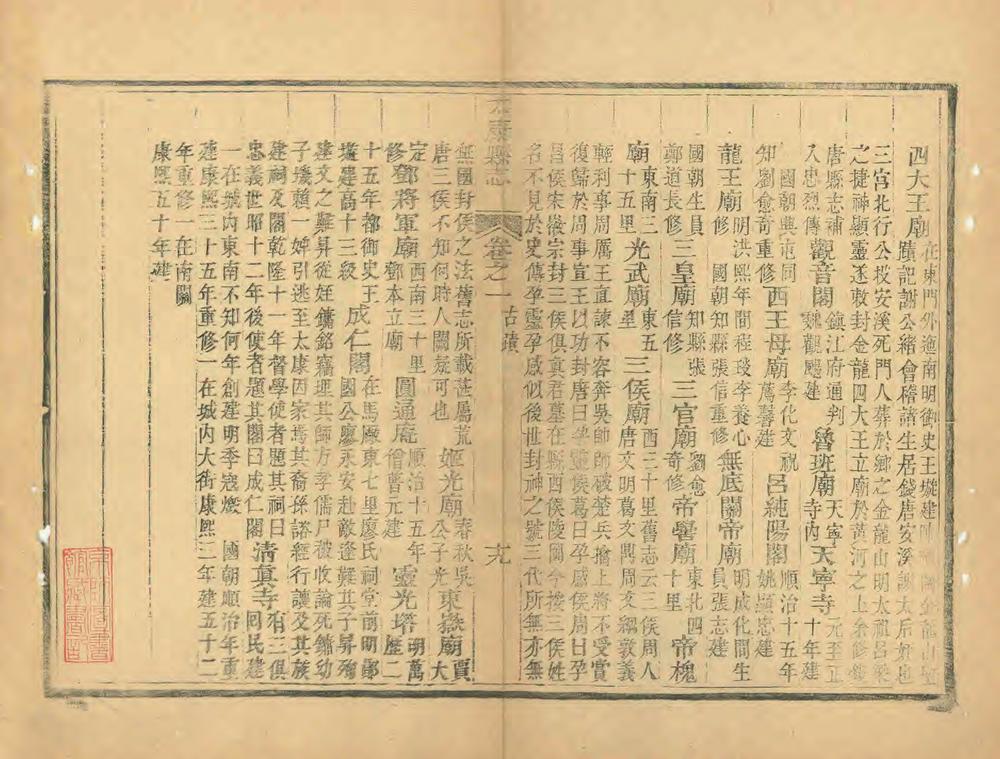 四大王廟 在東門外迤南明御史王璇建 蹟記謝公緒會稽諸生居錢唐安溪謝太后姪也
三宮北行公投安溪死門人葬於鄉之金龍山明太祖呂梁之捷神顯靈遂敕封金龍四大王立廟於黃河之上余修錢
唐縣志補入忠烈傳 觀音閣 鎮江府通判魏觀颺建 魯班廟 天寧寺內 天寧寺 元至正十年建
國朝興屯同知劉愈奇重修 西王母廟 李化文祝萬馨建 呂純陽閣 順治十五年姚顯忠建
龍王廟 明洪熙年間程瑗李養心 國朝知縣張信重修 無底關帝廟 明成化間生員張志建
國朝生員鄭道長修 三皇廟 知縣張信修 三官廟 劉愈奇修 帝嚳廟 東北四十里 帝槐
廟 東南三十五里 光武廟 東五里 三侯廟 西二十里舊志云三侯周人唐文明葛文周文敎義
輕利事周厲王直諫不容奔吳師師破楚兵擒上將不受賞復歸於周事宣王以功封唐曰孚靈侯葛曰孚感侯周曰孚
昌侯宋徽宗封三侯俱真君墓在縣西侯陵岡今三侯姓名不見於史傳孚靈孚感似後世封神之號三代所無亦無
太康縣志 卷之一 古蹟 十九
無國封侯之法舊志所載甚屬荒唐三侯不知何時人闕疑可也 姬光廟 春秋吳公子光 東嶽廟 賈大
定修 鄧將軍廟 西南三十里鄧本立廟 圓通庵 順治十五年僧普元建 靈光塔 明萬歷二
十五年都御史王璇建高十三級 成仁閣 在馬廠東七里廖氏祠堂前明鄖國公廖永安赴敵逢難其子昇殉
建文之難昇從姪鏞銘竊瘞其師方孝孺尸被收論死鏞幼子璣賴一婢引逃至太康因家焉其裔孫諮經行護及其族
建祠及閣乾隆十一年督學使者題其祠曰忠義世昭十二年後使者題其閣曰成仁閣 清真寺 有三俱囘民建
一在城內東南不知何年創建明季寇燬 國朝順治年重建康熙三十五年重修一在城內大街康熙二年建五十二
年重修一在南關康熙五十年建